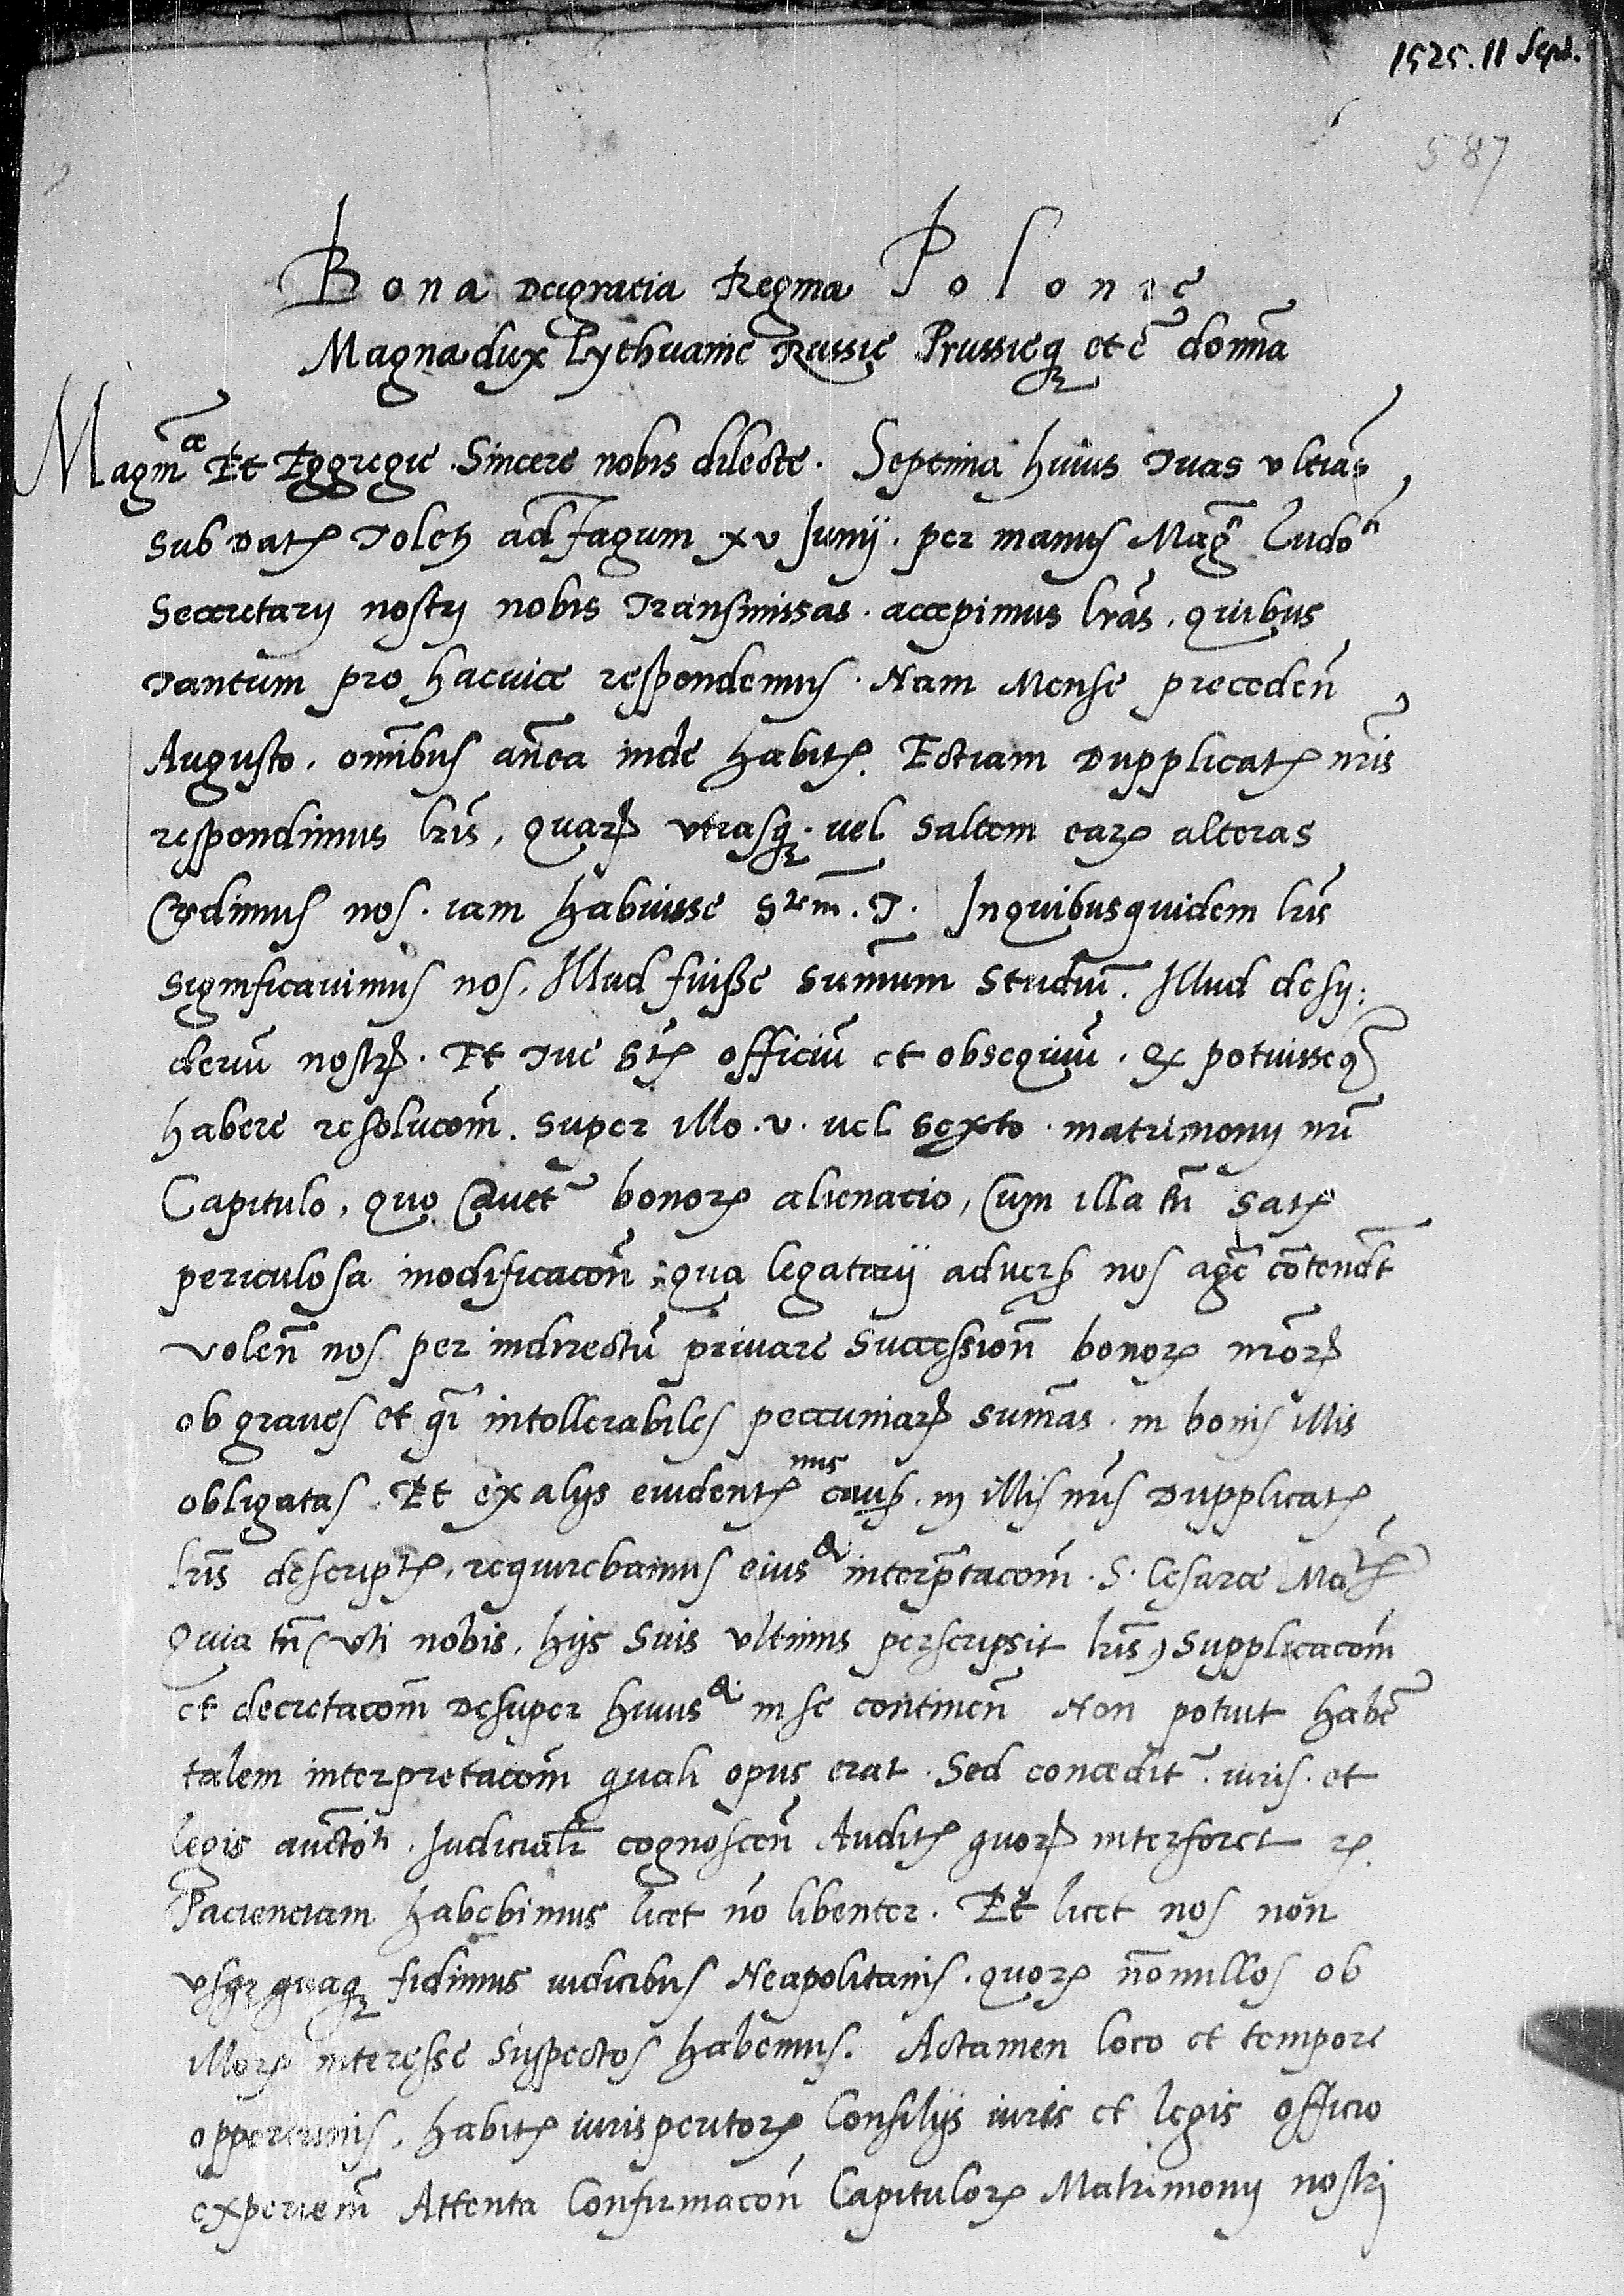 1525. 11 Sept.
587
Bona Dei gratia Regina Polonie
Magna dux Lythuanie Russie Prussieq etc̄ domna
Magnce Et Eggregie Sincere nobis dilecte. Septima huius Tuas ultias
sub Datꝭ Toleti ad Tagum xv Junij. per manus Mag Ludoci
Secretarij nostrj nobis Transmissas. accepimus lras. quibus
Tantum pro hac uice respondemus. Nam Mense preceden
Augusto. omibus antea inde habitꝭ. Ectiam Dupplicatꝭ nris
respondimus lris, quarꝝ utrasq. uel saltem earꝝ alteras
Credimus nos. iam habuisse Strm. T. In quibus quidem lris
significauimus nos. Illud fuisse summum Studiū. Illud desy:
deriū nostrꝝ. Et Tue Stꝭ officiū et obsequiū. ex potuisseq
habere resolucom. super illo. v. uel sexto. matrimonij nri
Capitulo, quo Cauet bonorꝝ alienatio, Cum illa tn satꝭ
periculosa modificacon. qua legatarij aduers nos agē cōtendt
volen nos per indirectū priuare succession bonorꝝ nrorꝝ
ob graues et qi intollerabiles peccuniarꝝ summas. in bonis illis
obligatas. Et ex alijs euidentmis caus. in illis nris Dupplicatꝭ
lris descriptꝭ, requirebamus eiusd interptacom. S. Cesaree Matꝭ
Quia tn (uti nobis, hijs suis ultimis perscripsit lris) supplicacom
et decretacom desuper huiusd in se continen Non potuit habē
talem interpretacom quali opus erat. Sed concedit. iuris. et
legis auctoti. Judicialr cognoscen Auditꝭ quorꝝ interforet ꝛc.
Pacienciam habebimus licet nō libenter. Et licet nos non
usq quaq fidimus iudicibus Neapolitanis. quorꝝ nōnullos ob
illorꝝ interesse suspectos habemus. Actamen loco et tempore
opportunis, habitꝭ iurisperitorꝝ Consilijs iuris et legis officio
experiem Attenta Confirmacon Capitulorꝝ Matrimonij nostri